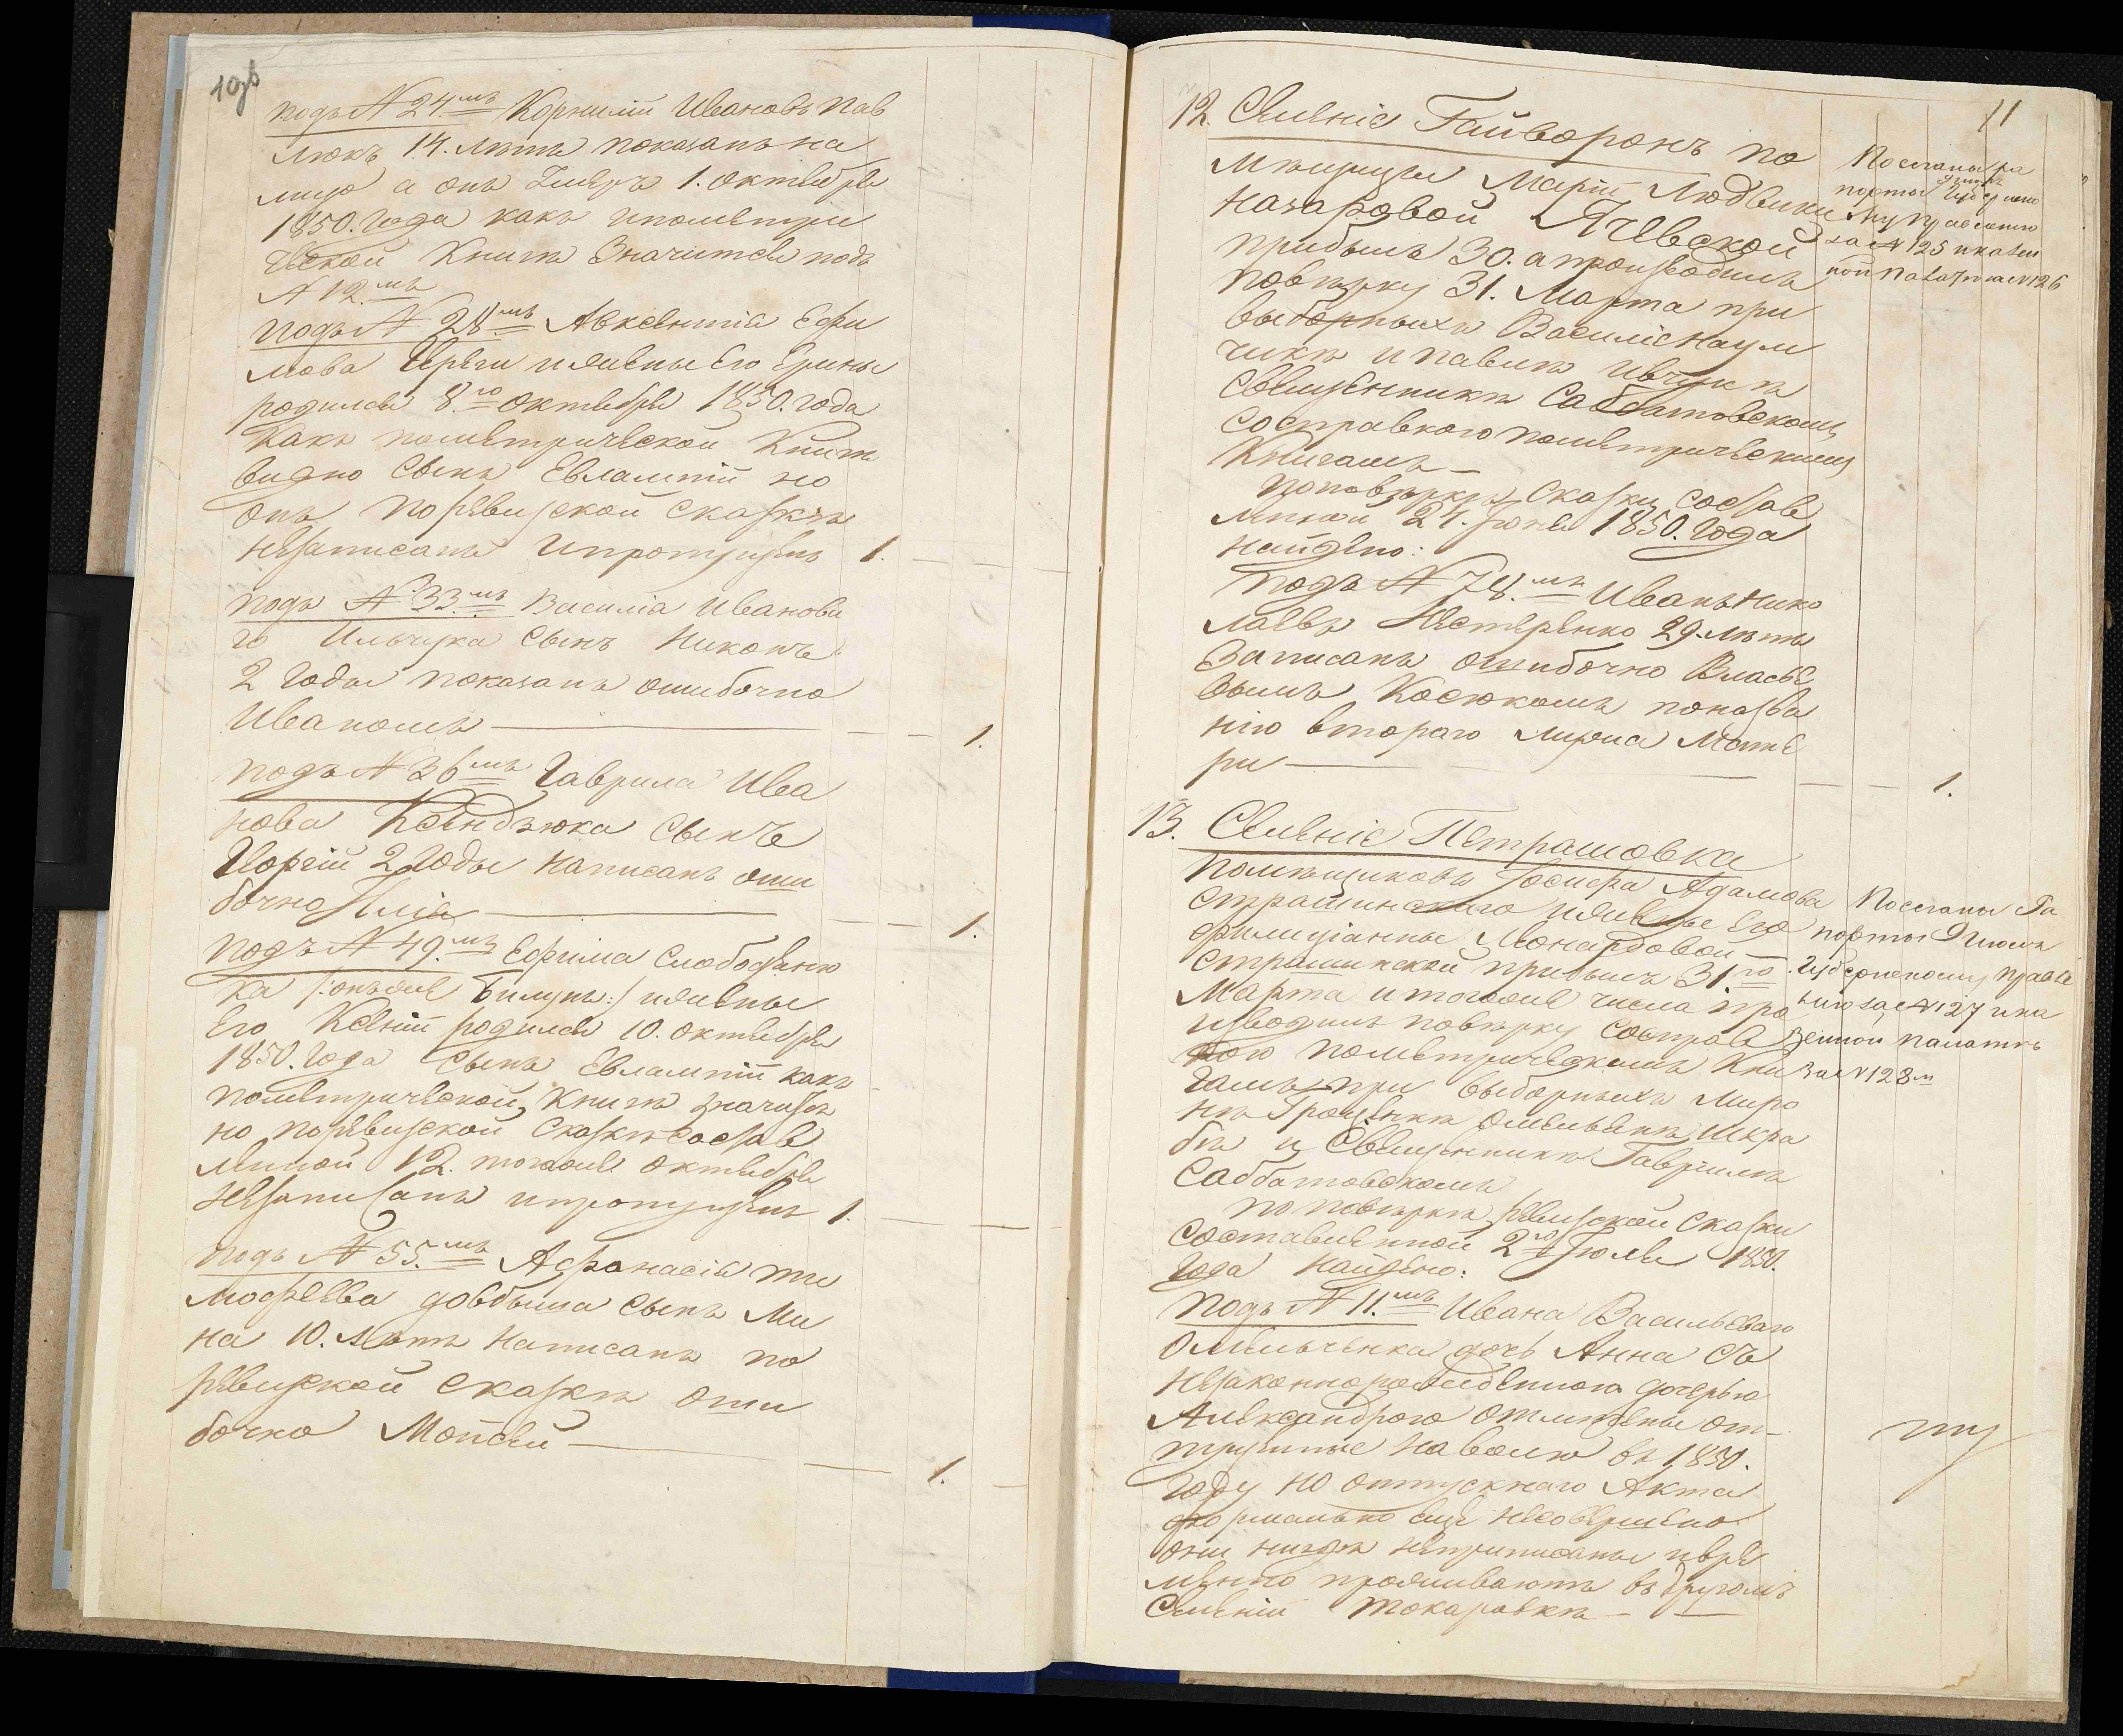 10об
подъ N 24.мъ Корнилій Ивановъ Пав
люкъ 14. лѣтъ показанъ на
лицо а онъ умеръ 1. Октября
1850. года какъ пометри
ческой Книгѣ Значится подъ
N 12.мъ
подъ N 28мъ Авксентія Ефи
мова и жены Его Ерины
родился 8.го Октября 1850. года
Какъ пометрической Книгѣ
видно Сынъ Евлампій но
онъ поревизской Сказкѣ
незаписанъ ипропущенъ 1.
подъ N 33.мъ Василія Иванови
го Ильчука Сынъ Никонъ
2 Годы показанъ ошибочно
Иваномъ — 1.
подъ N 36мъ Гаврила Ива
нова Ксендзюка Сынъ
Георгій 2 Годы написанъ оши
бочно Илія — 1.
подъ N 49.мъ Ефима Слободяню
ка /:онъже Билунъ:/ ижены
Его Ксеніи родился 10. Октября
1850. Года Сынъ Евлампій какъ
пометрической Книгѣ значится
но поревизской Сказкѣ состав
ленной 12. тогоже Октября
незаписанъ ипропущенъ 1.
подъ N 55.мъ Афанасія ти
мофеева довбыша Сынъ Ми
на 10. лѣтъ написанъ по
ревизской сказкѣ оши
бочно Мойсей — 1.
11
12. Селеніе Гайворонъ по
мѣщицы Маріи Людвики
Назаровой Ячевской
прибылъ 30. апроизводилъ
повѣрку 31. Марта при
выборныхъ Василіе Наум
чикѣ ипавлѣ
Священникѣ Саббатовскомъ
Сосправкою пометрическимъ
Книгамъ —
поповѣркѣ Сказки состав
ленной 24. Іюня 1850. Года
найдено:
подъ N 78.мъ Иванъ Нико
лаевъ Нестеренко 29. лѣтъ
Записанъ ошибочно Власье
вымъ Косюкомъ поназва
нію втораго мужа Мате
ри — 1.
Посланы ра
порты 9 Іюля Губернско
му Правленію
за N 125 иказен
ной Палатѣ за N 126
13. Селеніе Петрашовка
Помѣщиковъ Іосифа Адамова
Страшинскаго ижены Его
филиціанны Леонардовой
Страшинской прибылъ 31го
Марта итогоже числа про
изводилъ повѣрку Состправ
кою пометрическимъ Кни
гамъ при выборныхъ Миро
нѣ Грощенкѣ Омельянѣ Шкра
бѣ и Священникѣ Гавріилѣ
Саббатовскомъ
по повѣркѣ ревизской Сказки
Составленной 2го Іюля 1850.
Года найдено:
подъ N 11.мъ Ивана Васильеваго
Омельченка дочь Анна съ
незаконнорожденною дочерью
Александрою отмѣчены от-
пущенные наволю въ 1850.
Году но отпускнаго Акта
формально еще несовершено
они нигдѣ неприписаны ивре
менно проживаютъ въ другомъ
Селеніи Токаровкѣ —
Посланы Ра
порты 9 Іюля
Губернскому Правле
нію за N 127 ика
зенной палатѣ
за N 128м